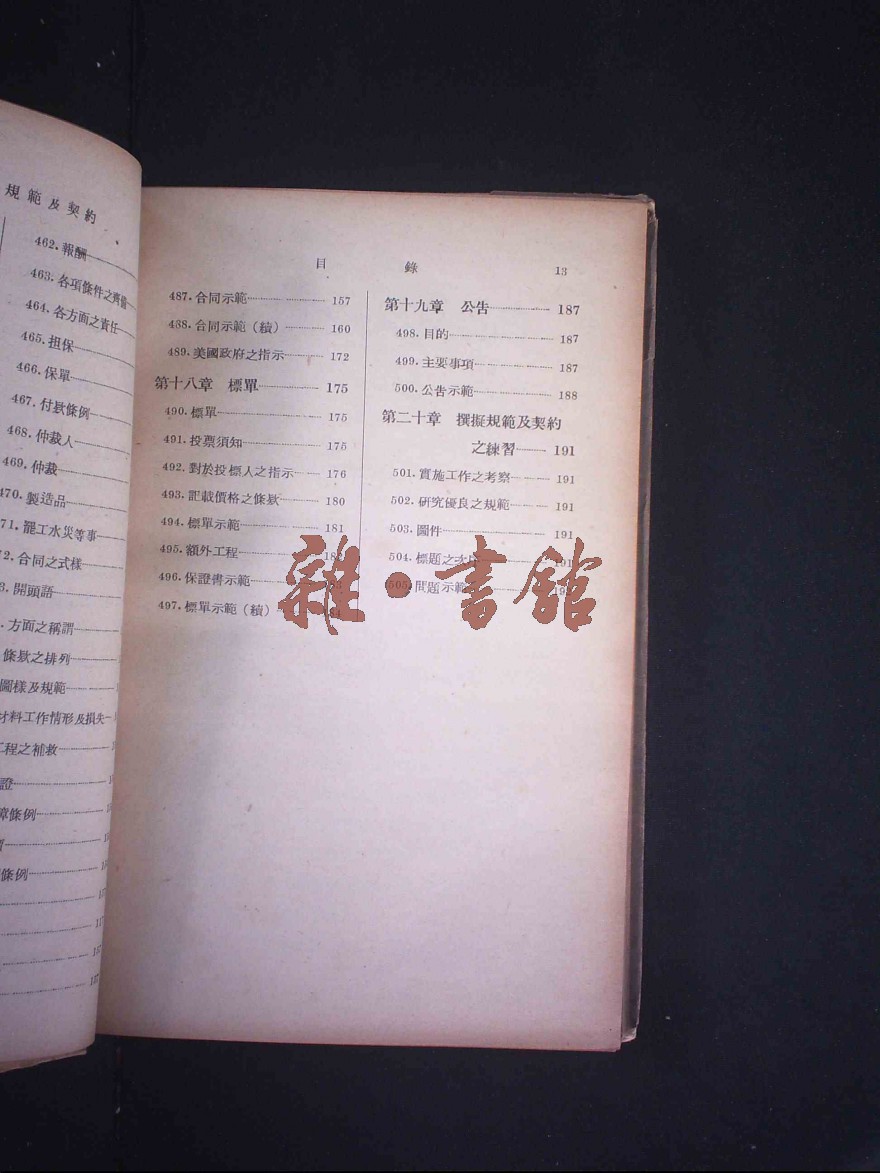 規範及契約
462. 報酬
463. 各項條件之齊備
464. 各方面之責任
465. 担保
466. 保單
467. 付欵條例
468. 仲裁人
469. 仲裁
470. 製造品
71. 罷工水災等事
2. 合同之式樣
3. 開頭語
方面之稱謂
條欵之排列
圖樣及規範
材料工作情形及損失
工程之補救
證
障條例
條例
157
目 錄 13
487. 合同示範 157
488. 合同示範（續） 160
489. 美國政府之指示 172
第十八章 標單 175
490. 標單 175
491. 投票須知 175
492. 對於投標人之指示 176
493. 記載價格之條欵 180
494. 標單示範 181
495. 額外工程
496. 保證書示範
497. 標單示範（續）
第十九章 公告 187
498. 目的 187
499. 主要事項 187
500. 公告示範 188
第二十章 撰擬規範及契約
之練習 191
501. 實施工作之考察 191
502. 研究優良之規範 191
503. 圖件 191
504. 標題之 191
505. 問題示範
雜·書館